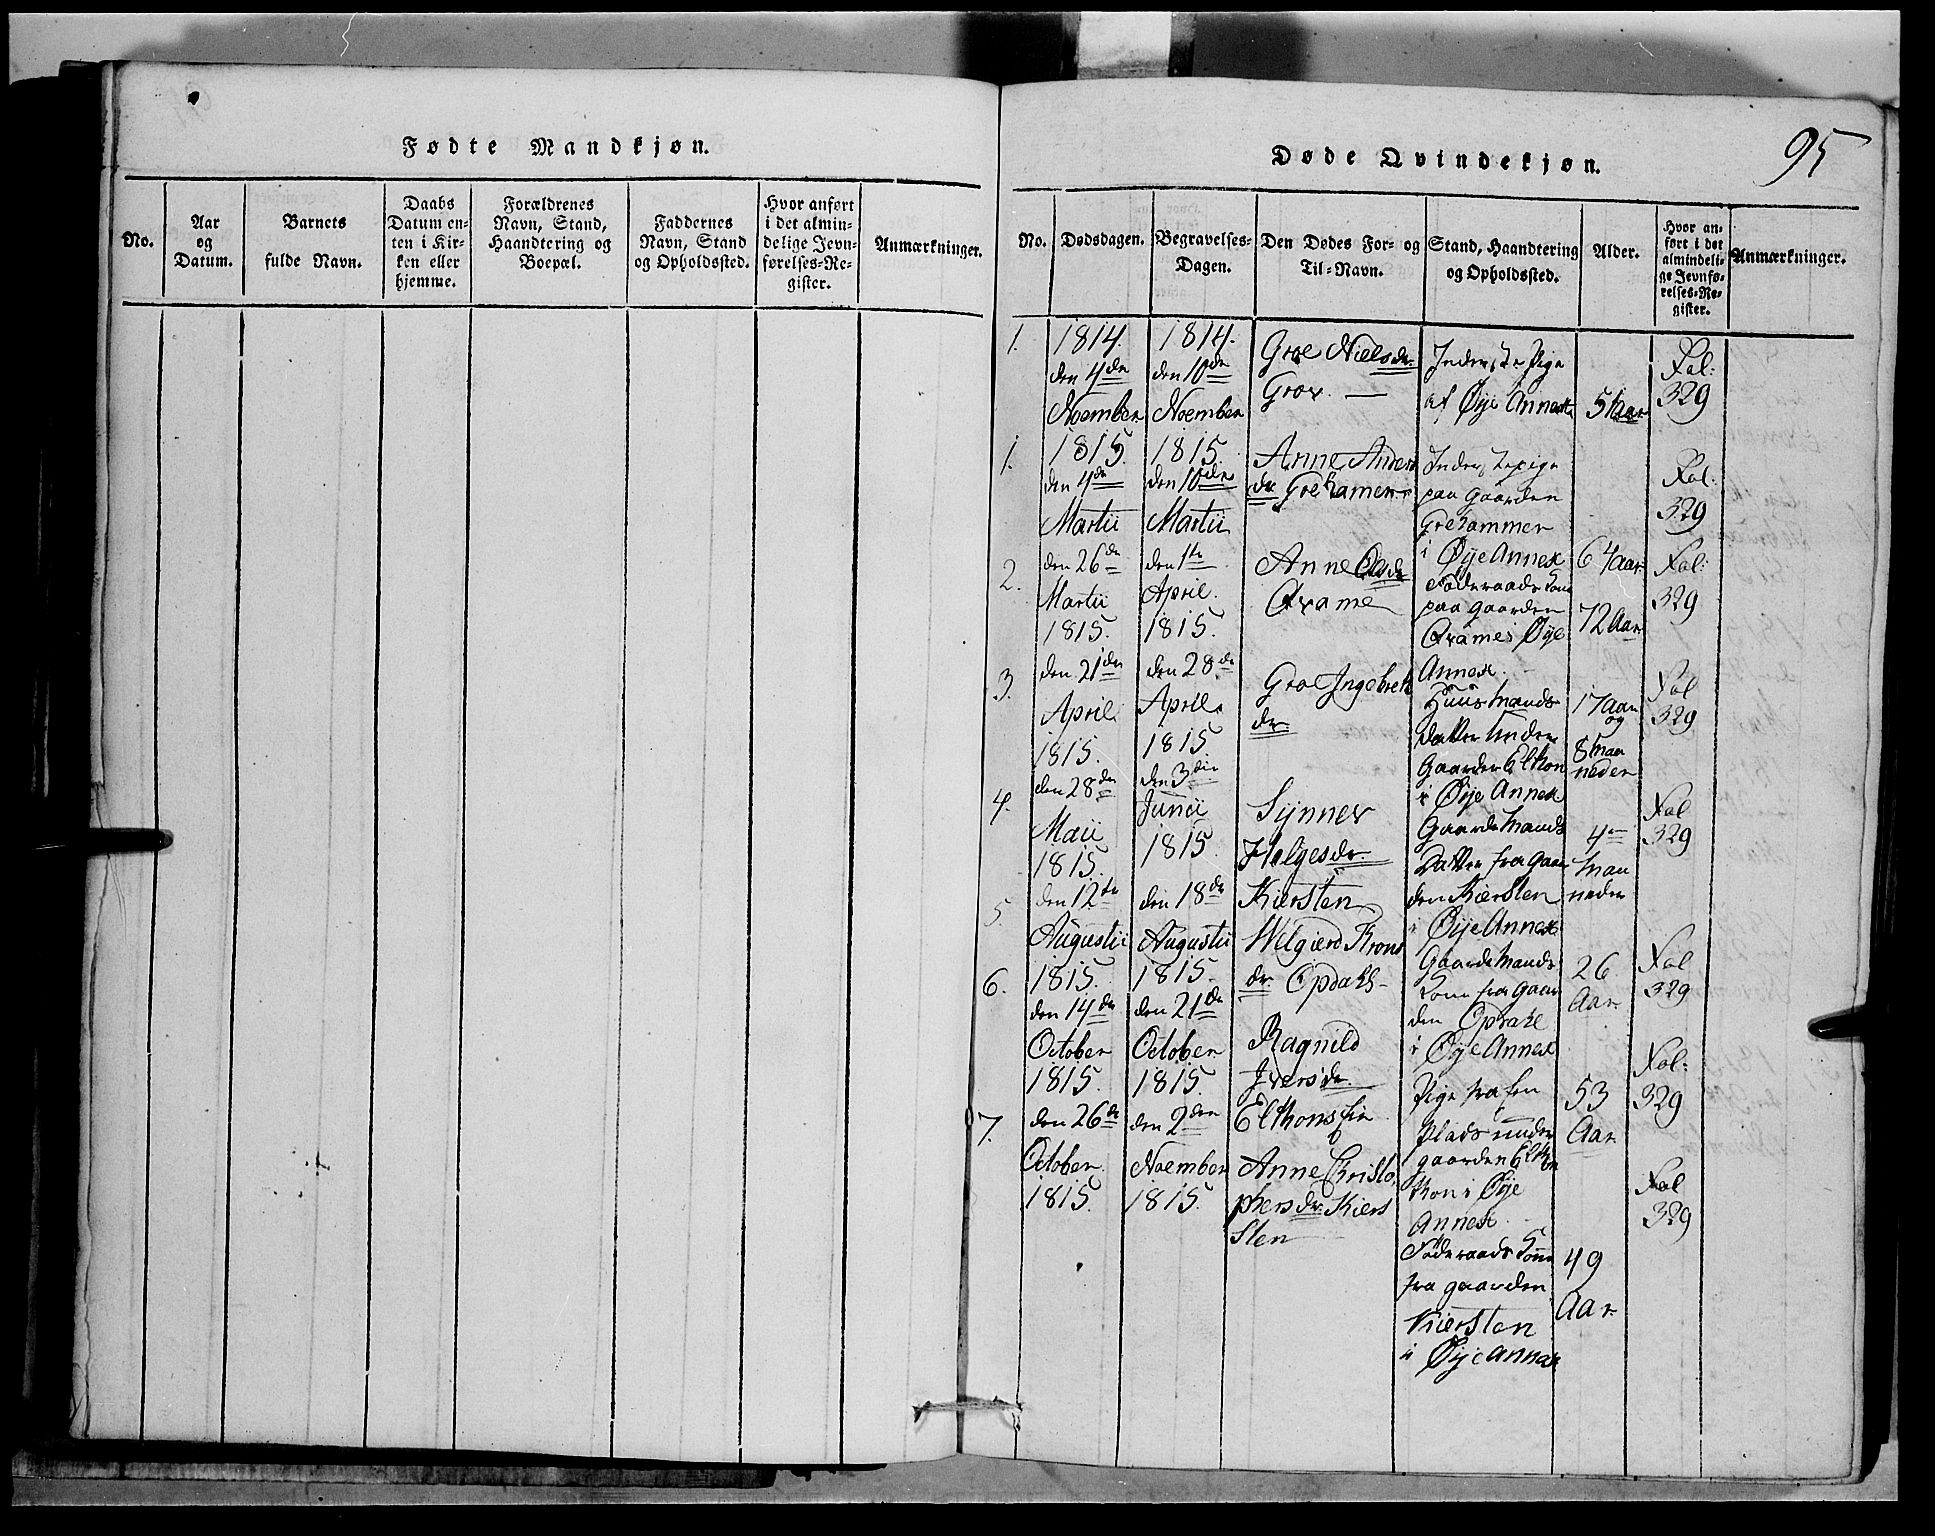 Fødte Mandkjøn.
No.
Aar
og
Datum.
Barnets
fulde Navn.
Daabs
Datum en-
ten i Kir-
ken eller
hjemme.
Forældrenes
Navn, Stand,
Haandtering og
Boepæl.
Faddernes
Navn, Stand
og Opholdssted.
Hvor anført
i det almin-
delige Jevn-
førelses-Re-
gister.
Anmærkninger.
Døde Qvindekjøn.
95
No.
Dødsdagen.
Begravelses-
Dagen.
Den Dødes For- og
Til-Navn.
Stand, Haandtering
og Opholdssted.
Alder.
Hvor an-
ført i det
almindeli-
ge Jevnfø-
relses-Re-
gister.
Anmærkninger.
1.
1814.
den 4de
Noember
1814.
den 10de
Noember
Groe Nielsdr.
Grov.
Inderste Pige
af Øye Annex
51 aar
Fol:
329
1.
1815.
den 4de
Martii
1815.
den 10de
Martii
Anne Anders
dr Grehamer
Inderstepige
paa gaarden
Grehammer
i Øye Annex
64 aar
Fol:
329
2.
den 26de
Martii
1815.
den 1te
April.
1815.
Anne Olsdr
Qvame
Föderaads Kone
paa gaarden
Qvame i Øye
Annex
72 aar
Fol:
329
3.
den 21de
April
1815.
den 28de
April.
1815
Groe Ingebreth
dr
Huusmands
datter under
Gaarden Elthon
i Øye Annex
17 aar
og
8 maa
neder
Fol
329
4.
den 28de
Maii
1815.
den 3die
Junii
1815.
Synnev
Helgesdr.
Kiersten
Gaardmands
Datter fra gaar
den Kiersten
i Øye Annex
4re
maa
neder
Fol
329
5.
den 12te
Augustii
1815.
den 18de
Augustii
1815.
Wilgierd Krons
dr. Opdahl
Gaardmands
Kone fra gaar
den Opdahl
i Øye Annex
26
Aar
Fol
329
6.
den 14de
October
1815.
den 21de
October
1815.
Ragnild
Iversdr.
Elthonsfie
Pige fra
Plads under
gaarden Elthon
i Øye
Annex
53
Aar
Fol:
329
7.
den 26de
October.
1815.
den 2den
Noember
1815.
Anne Christo
phersdr. Kiers
sten
Föderaads Kone
fra gaarden
Kiersten
i Øye Annex
49
Aar
Fol
329